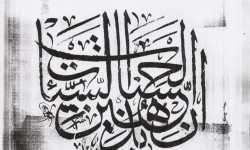 إن الحسنات يذهبن السيئات